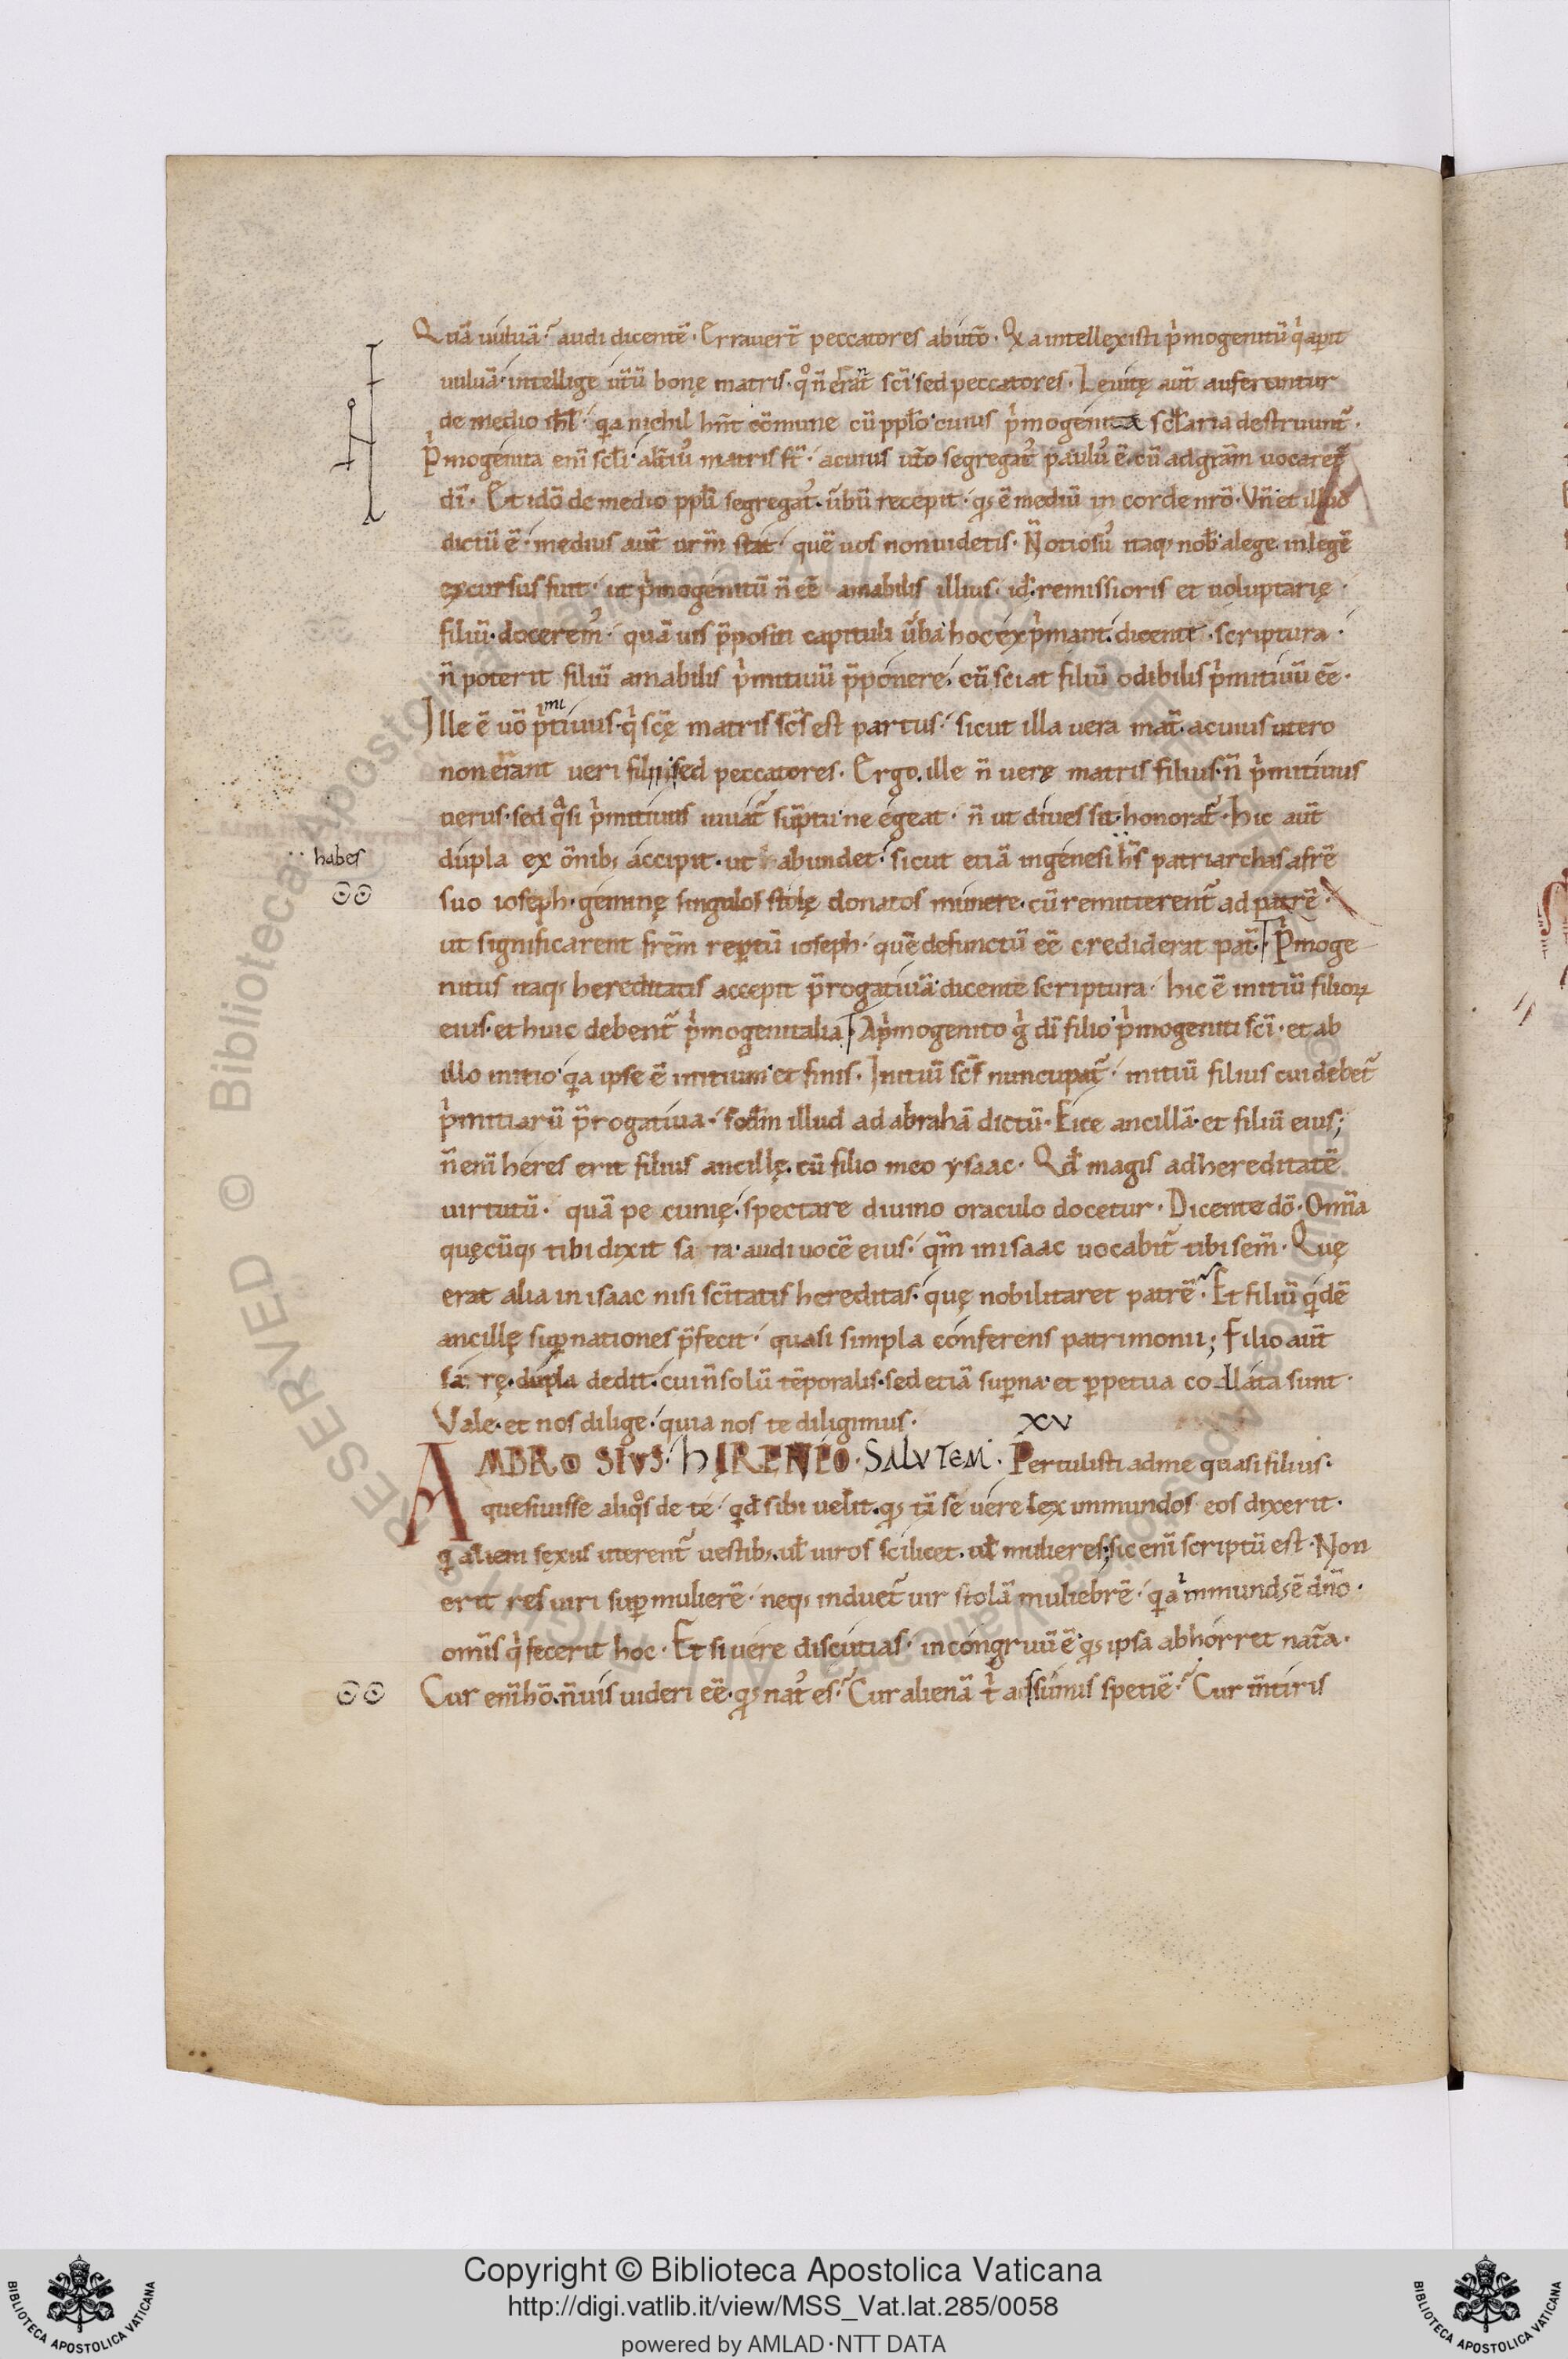 Quã uuluã audi dicentẽ · Erraver̃t peccatores ab uto᷃ · Qa intellexisti pͥmogenitũ qͥ ap̃it
uuluã · intellige utũ bonę matris · qͦ ñ erãt sc̃i sed peccatores · Leuitę aut̃ auferuntur
de medio isr̃l · qa nichil hñt cõmune cũ pplo cuius pͥmogenita scl̃aria destruunt̃ ·
Pͥmogenita enĩ scl̃i · alt̃iꝰ matris st̃ · a cuius uto᷃ segregatꝰ paulꝰ ẽ · cũ ad grãm uocaret̃
dĩ · Et idõ de medio ppl̃i segregatꝰ · ũbũ recepit · qđ ẽ mediũ in corde nrõ · Vñ et illud
dictũ ẽ · medius aut̃ ur̃m stat · quẽ uos non uidetis · Ñ otiosꝰ itaq; nob̃ a lege in legẽ
excursus fuit · ut pͥmogenitũ ñ eẽ amabilis illius · id · remissioris et uoluptarię ·
filiũ · docerem᷒ · quã uis p̃positi capituli ũba hoc expͥmant · dicente scriptura ·
ñ poterit filiũ amabilis pͥmitiuũ p̃ponere · cũ sciat filiũ odibilis pͥmitiuũ eẽ ·
Ille ẽ uõ pͥmitiuus · qͥ scę̃ matris sc̃s est partus · sicut illa vera mat̃ · a cuius utero
non erant veri filii sed peccatores · Ergo ille ñ verę matris filius · ñ pͥmitiuus
verus · sed qͣsi pͥmitiuus iuuat̃ sũptu · ne egeat · ñ ut diues sit · honorat̃ · hic aut̃
dupla ex õnib; accipit · ut abundet · sicut etiã in genesi h̃s patriarchas a fr̃e
habes
suo ioseph · geminę singulos stolę donatos munere · cũ remitterent̃ ad patrẽ ·
ut significarent fr̃em reptũ ioseph · quẽ defunctũ eẽ crediderat pat̃ · Pͥmoge
nitus itaq; hereditatis accepit p̃rogatiuã · dicente scriptura · hic ẽ initiũ filioꝝ
eius · et huic debent̃ pͥmogenitalia · A pͥmogenito gͥ dĩ filio · pͥmogeniti sc̃i · et ab
illo initio · qa ipse ẽ initium et finis · Initiũ sc̃s nuncupat̃ · initiũ filius cui debet̃
pͥmitiarũ p̃rogatiua · scđm illud ad abrahã dictũ · Eice ancillã · et filiũ eius;
ñ enĩ heres erit filius ancillę · cũ filio meo ysaac · Qđ magis ad hereditatẽ
uirtutũ · quã pe cunię · spectare diuino oraculo docetur · Dicente dõ · Omĩa
quęcũq; tibi dixit sa ra · audi uocẽ eius · qm̃ in isaac uocabit̃ tibi sem̃ · Quę
erat alia in isaac nisi scĩtatis hereditas · quę nobilitaret patrẽ · Et filiũ qͥdẽ
ancillę sup nationes p̃fecit · quasi simpla conferens patrimonii; Filio aut̃
sa rę · dupla dedit · cui ñ solũ tẽporalis · sed etiã sup̃na · et ppetua collata sunt ·
Vale · et nos dilige · quia nos te diligimus · XV
AMBROSIVS · HIRENEO · SALVTEM · Pertulisti ad me quasi filius ·
quesiuisse aliqͦs de te · qđ sibi uelit · qđ tã seuere lex immundos eos dixerit ·
q alieni sexus uterent̃ uestib; · ul̃ uiros scilicet · ul̃ mulieres; sic enĩ scriptũ est · Non
erit res uiri sup mulierẽ · neq; induet̃ uir stolã muliebrẽ · qa immunds ẽ dño ·
omĩs qͥ fecerit hoc · Et si uere discutias · incongruũ ẽ · qđ ipsa abhorret nat̃a ·
Cur enĩ hõ · ñ uis uideri eẽ · qđ natꝰ es · Cur alienã tͥ assumis spetiẽ · Cur m̃tiris
Copyright © Biblioteca Apostolica Vaticana
http://digi.vatlib.it/view/MSS_Vat.lat.285/0058
powered by AMLAD·NTT DATA